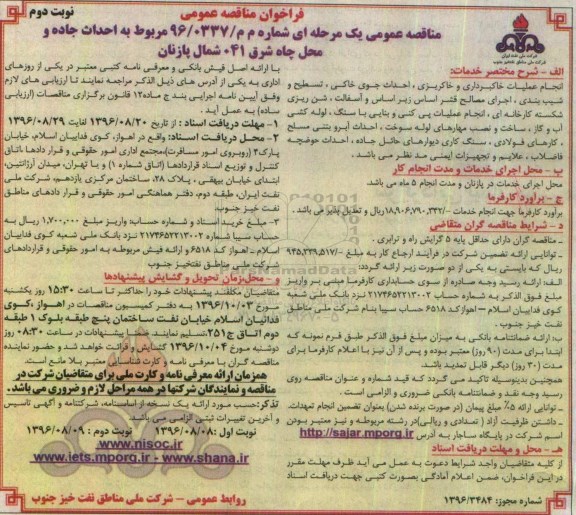 فراخوان مناقصه عمومی
نوبت دوم
مناقصه عمومی یک مرحله ای شماره م م/۹۶/۰۳۳۷ مربوط به احداث جاده و
محل چاه شرق ۰۴۱ شمال پازنان
الف - شرح مختصر خدمات:
انجام عملیات خاکبرداری و خاکریزی ، احداث جوی خاکی ، تسطیح و
شیب بندی ، اجرای مصالح قشر اساس زیر اساس و آسفالت ، شن ریزی
شکسته کارخانه ای ، انجام عملیات پی کنی و بنایی با سنگ ، لوله کشی
آب و گاز ، ساخت و نصب مهارهای لوله سوخت ، احداث آبرو بتنی مسلح
، کارهای فولادی ، سنگ کاری دیوارهای حائل جاده ، احداث حوضچه
فاضلاب ، علایم و تجهیزات ایمنی مد نظر می باشد .
ب - محل اجرای خدمات و مدت انجام کار
محل اجرای خدمات در پازنان و مدت انجام ۵ ماه می باشد.
ج - برآورد کارفرما
برآورد کارفرما جهت انجام خدمات -/۱۸،۹۰۶،۷۹۰،۳۳۲ ریال و تعدیل پذیر می باشد .
د - شرایط مناقصه گران متقاضی
ـ مناقصه گران دارای حداقل پایه ۵ گرایش راه و ترابری .
ـ توانایی ارائه تضمین شرکت در فرآیند ارجاع کار به مبلغ -/۹۴۵،۳۳۹،۵۱۷
ریال که بایستی به یکی از دو صورت زیر ارائه گردد:
الف: ارائه رسید وجه صادره از سوی حسابداری کارفرما مبنی بر واریز
مبلغ فوق الذکر به شماره حساب ۲۱۷۴۶۵۲۲۱۳۰۰۲ نزد بانک ملی شعبه
کوی فداییان اسلام – اهواز کد ۶۵۱۸ حساب سیبا بنام شرکت ملی مناطق
نفت خیز جنوب .
ب: ارائه ضمانتنامه بانکی به میزان مبلغ فوق الذکر طبق فرم نمونه که
ابتدا برای مدت (۹۰ روز) معتبر بوده و پس از آن نیز با اعلام کارفرما برای
مدت (۳۰ روز) دیگر قابل تمدید باشد.
همچنین بدینوسیله تاکید می گردد که قید شماره و عنوان مناقصه روی
رسید وجه نقد و ضمانتنامه بانکی ضروری و الزامی است .
ـ توانایی ارائه ۵٪ مبلغ پیمان (در صورت برنده شدن) بعنوان تضمین انجام تعهدات.
ـ داشتن ظرفیت آزاد ( تعدادی و ریالی)در رشته مربوطه و نیز معتبر بودن
اسم شرکت در پایگاه ساجار به آدرس http://sajar.mporg.ir
هـ - محل و مهلت دریافت اسناد
از کلیه متقاضیان واجد شرایط دعوت به عمل می آید ظرف مهلت مقرر
در این فراخوان، ضمن اعلام آمادگی بصورت کتبی جهت دریافت اسناد
شماره مجوز: ۱۳۹۶/۳۴۸۴
با ارائه اصل فیش بانکی و معرفی نامه کتبی معتبر در یکی از روزهای
اداری به یکی از آدرس های ذیل الذکر مراجعه نمایند تا ارزیابی های لازم
وفق آیین نامه اجرایی بند ج ماده۱۲ قانون برگزاری مناقصات (ارزیابی
ساده) به عمل آید .
۱- مهلت دریافت اسناد : از تاریخ ۱۳۹۶/۰۸/۲۰ لغایت ۱۳۹۶/۰۸/۲۹
۲- محل دریافت اسناد: واقع در اهواز، کوی فداییان اسلام، خیابان
پارک۳ (روبروی امور مسافرت)مجتمع اداری امور حقوقی و قرار دادها ،اتاق
کنترل و توزیع اسناد قراردادها (اتاق شماره ۱) و یا تهران، میدان آرژانتین،
ابتدای خیابان بیهقی ، پلاک ۲۸، ساختمان مرکزی یازدهم، شرکت ملی
نفت ایران، طبقه دوم، دفتر هماهنگی امور حقوقی و قرار دادهای مناطق
نفت خیز جنوب.
۳- مبلغ خرید اسناد و شماره حساب: واریز مبلغ ۱،۷۰۰،۰۰۰ ریال به
حساب سیبا شماره ۲۱۷۴۶۵۲۲۱۳۰۰۲ نزد بانک ملی شعبه کوی فداییان
اسلام ـ اهواز کد ۶۵۱۸ و ارائه فیش مربوطه به امور حقوقی و قراردادهای
شرکت ملی مناطق نفتخیز جنوب
و - محل،زمان تحویل و گشایش پیشنهادها
متقاضیان مکلفند پیشنهادات خود را حداکثر تا ساعت ۱۵:۳۰ روز یکشنبه
مورخ ۱۳۹۶/۱۰/۰۳ به دفتر کمیسیون مناقصات در اهواز ،کوی
فدائیان اسلام خیابان نفت ساختمان پنج طبقه بلوک ۱ طبقه
دوم اتاق ج۲۵۱،تسلیم نمایند. ضمنا پیشنهادات در ساعت ۰۸:۳۰ روز
دوشنبه مورخ ۱۳۹۶/۱۰/۰۴ گشایش و قرائت خواهد شد و حضور نماینده
مناقصه گران با معرفی نامه و کارت شناسایی معتبر بلا مانع است.
همزمان ارائه معرفی نامه و کارت ملی برای متقاضیان شرکت در
مناقصه و نمایندگان شرکتها در همه مراحل لازم و ضروری می باشد.
تذکر:حسب مورد ارائه یک نسخه از اساسنامه، شرکتنامه و آگهی تاسیس
و آخرین تغییرات ثبتی الزامی می باشد.
نوبت اول :۱۳۹۶/۰۸/۰۸ نوبت دوم : ۱۳۹۶/۰۸/۰۹
www.nisoc.ir
www.iets.mporg.ir - www.shana.ir
روابط عمومی – شرکت ملی مناطق نفت خیز جنوب